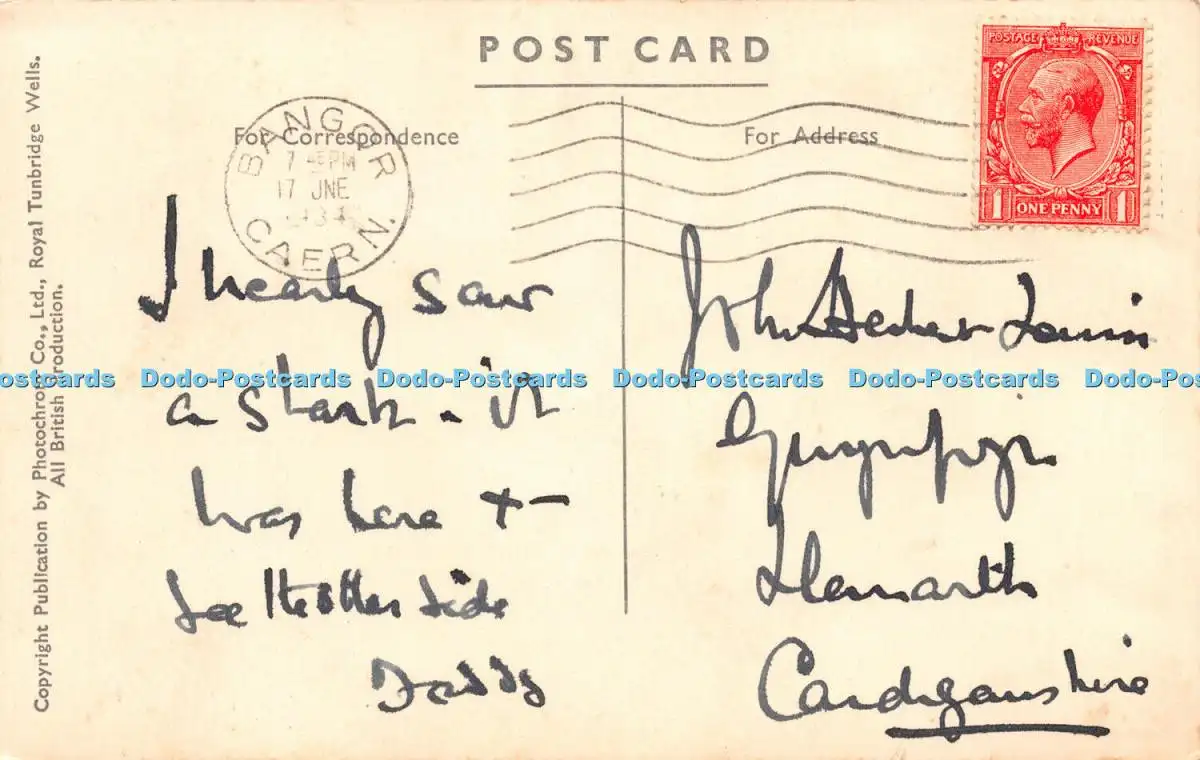 POST CARD
For Correspondence
For Address
BANGOR
7 PM
17 JNE
34
CAERN.
POSTAGE REVENUE
1 ONE PENNY 1
I nearly saw
a Shark - it
was here + -
See the other side
Daddy
John Herbert Lewis
Llanarth
Cardiganshire
Copyright Publication by Photochrom Co., Ltd., Royal Tunbridge Wells.
All British Production.
Dodo-Postcards Dodo-Postcards Dodo-Postcards Dodo-Postcards Dodo-Postcards